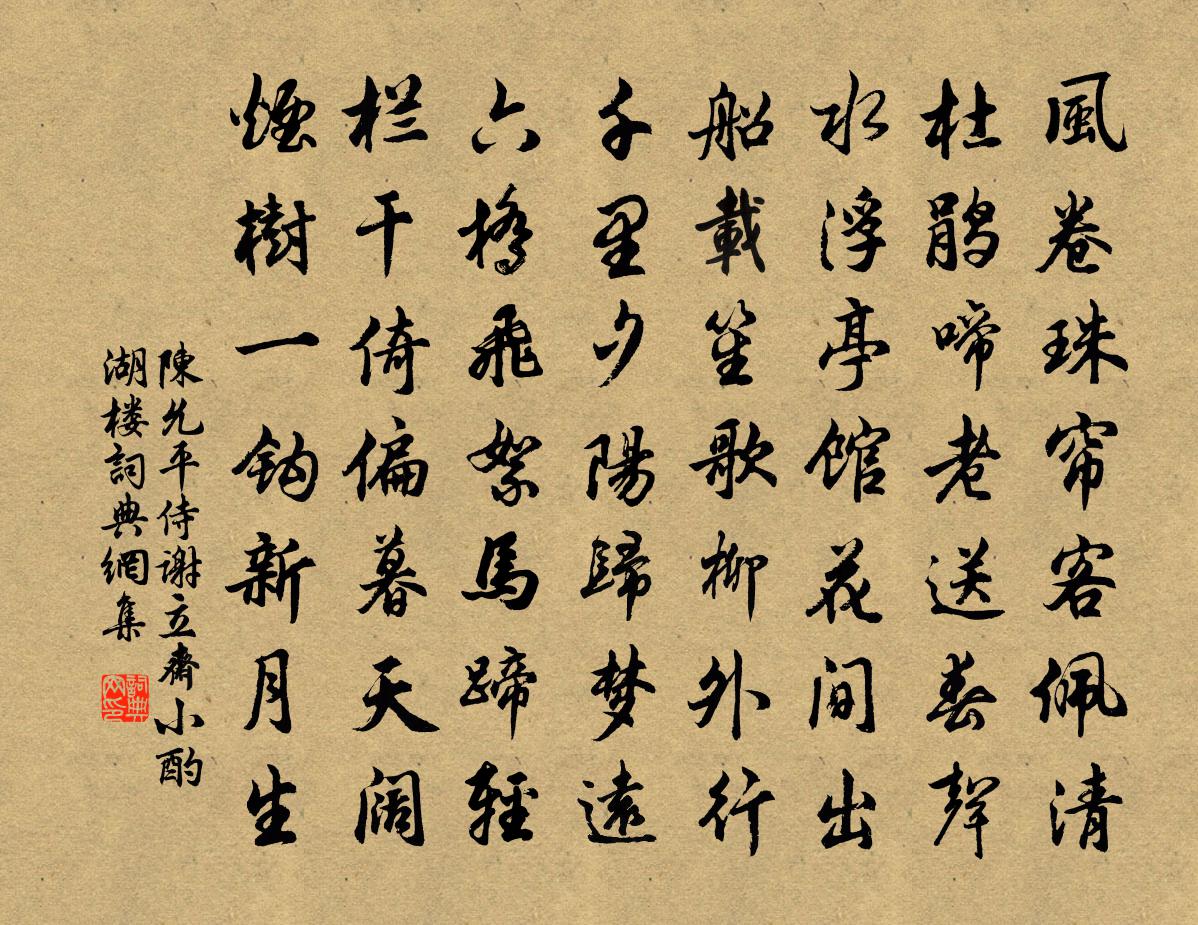 風卷珠帘客佩清
杜鹃啼老送春聲
水浮亭馆花间出
船載笙歌柳外行
千里夕陽歸梦遠
六橋飛絮馬蹄輕
栏干倚偏暮天阔
煙樹一钩新月生
陳允平侍谢立齋小酌
湖楼詞典網集
詞典网印